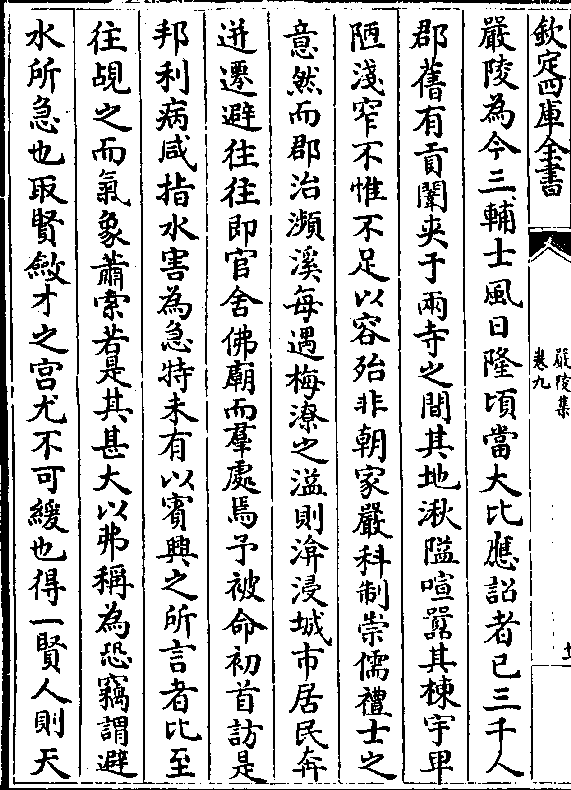 欽定四庫全書
嚴陵集
卷九
十
嚴陵為今三輔士風日隆頃當大比應詔者已三千人
郡舊有貢闈夾于兩寺之間其地湫隘喧囂其棟宇卑
陋淺窄不惟不足以容殆非朝家嚴科制崇儒禮士之
意然而郡治瀕溪每遇梅潦之溢則渰浸城市居民奔
迸遷避往往即官舍佛廟而羣處焉予被命初首訪是
邦利病咸指水害為急特未有以賓興之所言者比至
往覘之而氣象蕭索若是其甚大以弗稱為恐竊謂避
水所急也取賢斂才之宫尤不可緩也得一賢人則天